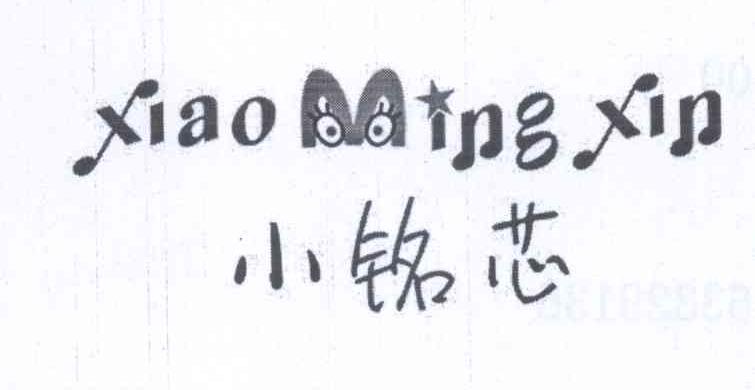 xiao Ming xin
小铭芯